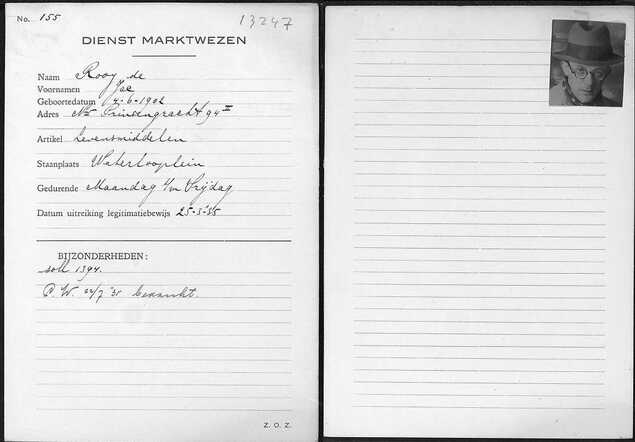 No. 155
13247
DIENST MARKTWEZEN
Naam Rooy de
Voornamen Jac
Geboortedatum 4-6-1902
Adres Nwe Prinsengracht 94 II
Artikel Levensmiddelen
Staanplaats Waterlooplein
Gedurende Maandag t/m Vrijdag
Datum uitreiking legitimatiebewijs 25-3-'35
BIJZONDERHEDEN:
soll 1394.
P.W. 22/7 '35
Z. O. Z.